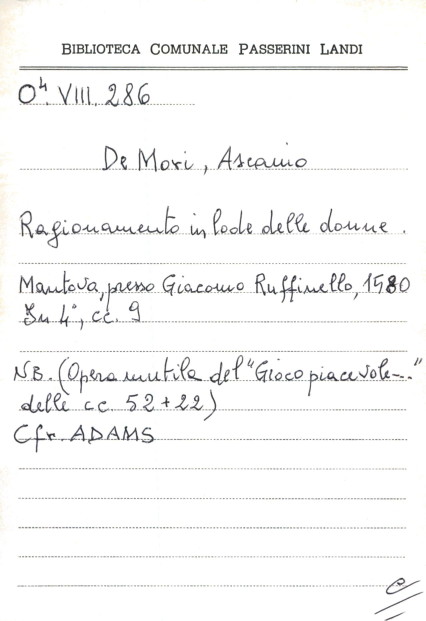 BIBLIOTECA COMUNALE PASSERINI LANDI
O⁴. VIII. 286
De Mori, Ascanio
Ragionamento in lode delle donne.
Mantova, presso Giacomo Ruffinello, 1580
In 4°, cc. 9
NB. (Opera mutila del "Gioco piacevole..."
delle cc. 52+22)
Cfr. ADAMS